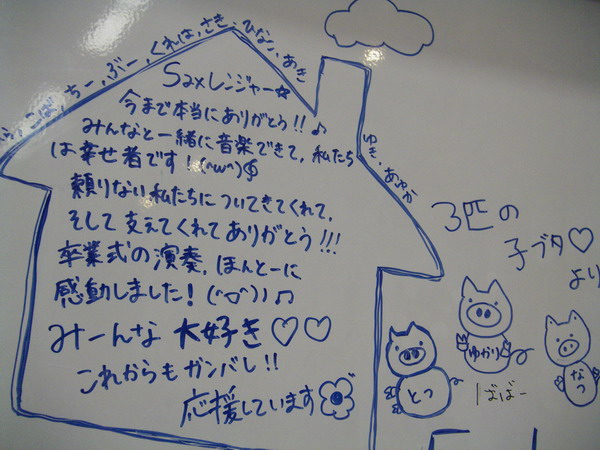 こば,ちー,ぶー,くれは,さき,ひなこ,あき
Saxレンジャー☆
今まで本当にありがとう!!♪
みんなと一緒に音楽できて,私たち
は幸せ者です!(^ω^)
頼りない私たちについてきてくれて,
そして支えてくれてありがとう!!!
卒業式の演奏,ほんとーに
感動しました!(^o^)♪
みーんな 大好き♡♡
これからもガンバレ!!
応援しています
ゆき,あゆか
3匹の
子ブタ♡
より
とつ
ゆかり
ばばー
なつ